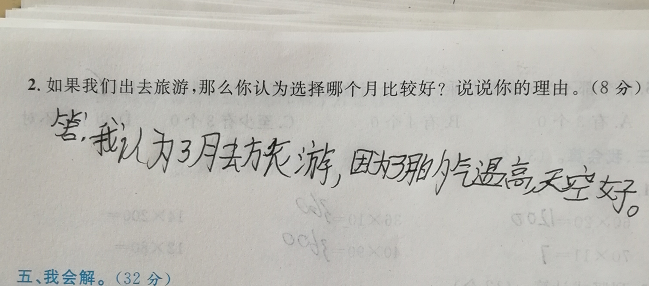 2. 如果我们出去旅游,那么你认为选择哪个月比较好?说说你的理由。(8分)
答:我认为3月去旅游,因为3月的气温高,天空好。
五、我会解。(32分)